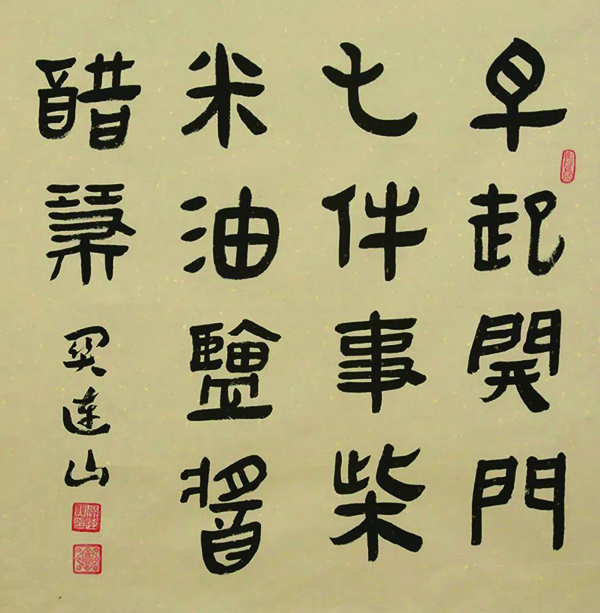 早起開門
七件事柴
米油鹽醬
醋琹
連山